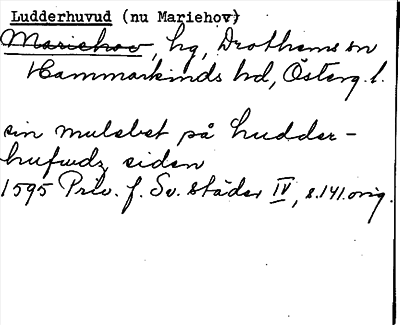 Ludderhuvud (nu Mariehov)
Mariehov, hg, Drothems sn
Hammarkinds hd, Österg. l.
sin mulabet på hudder-
hufwdz siden
1595 Priv. f. Sv. städer IV, s. 141. orig.